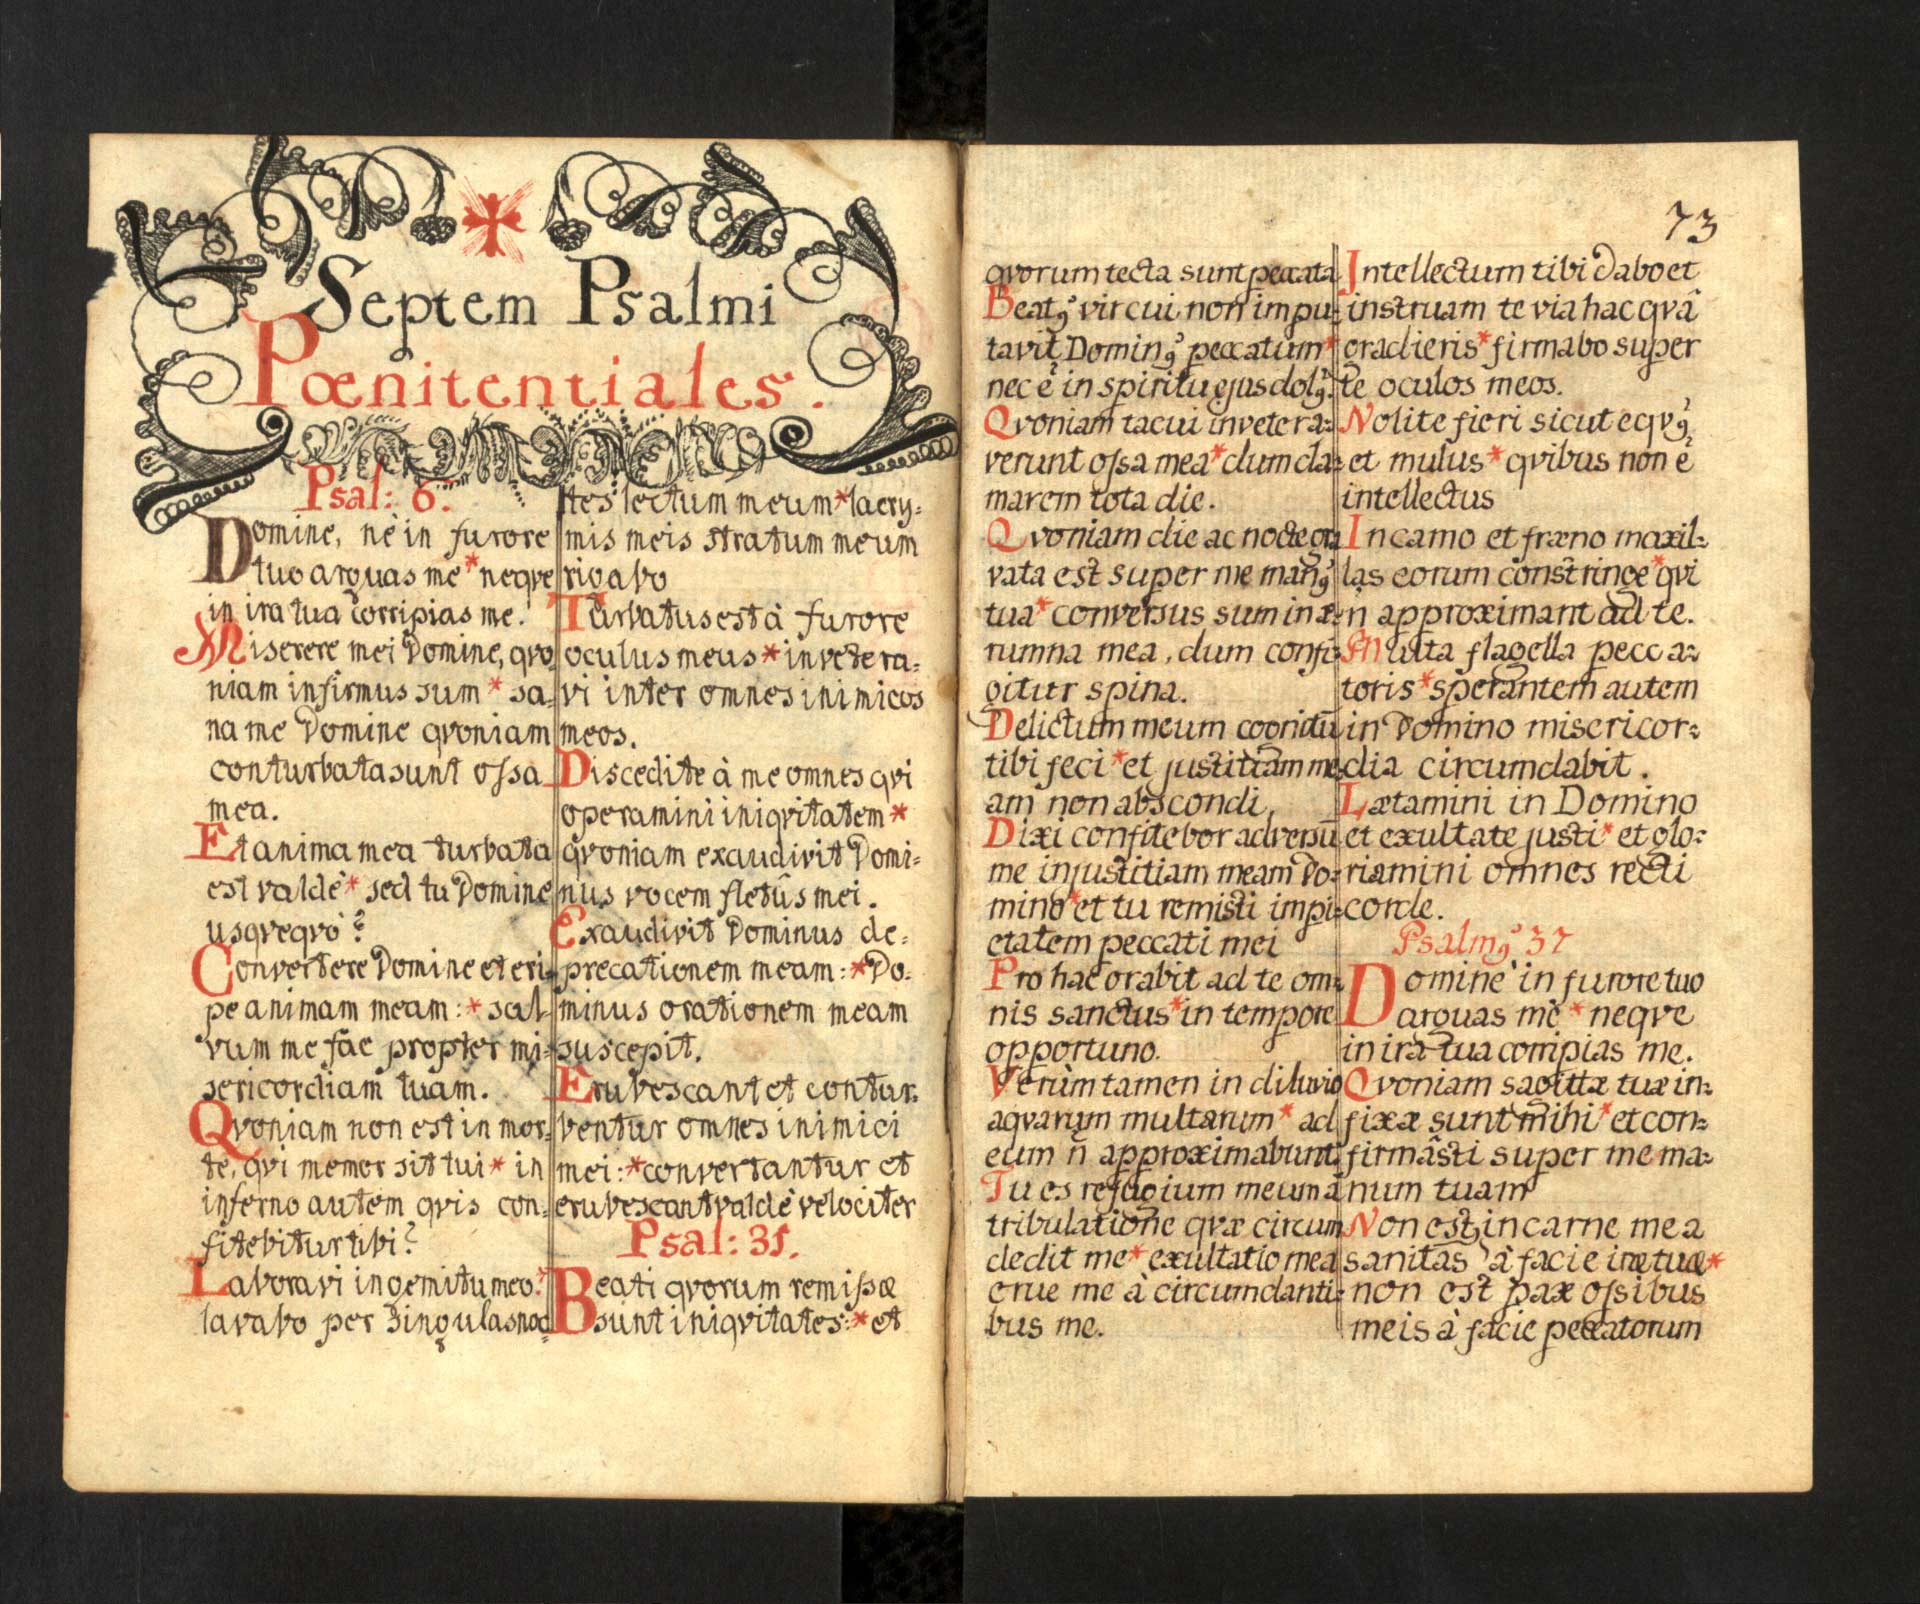 Septem Psalmi
Pœnitentiales.
Psal: 6.
Domine, nè in furore
tuo arguas me * neqve
in ira tua corripias me.
Miserere mei Domine, qvo
niam infirmus sum * sa-
na me Domine qvoniam
conturbata sunt ossa
mea.
Et anima mea turbata
est valdè * sed tu Domine
usqveqvò?
Convertere Domine et eri-
pe animam meam: * sal-
vum me fac propter mi-
sericordiam tuam.
Qvoniam non est in mor-
te, qvi memor sit tui * in
inferno autem qvis con-
fitebitur tibi?
Laboravi in gemitu meo *
lavabo per singulas noc-
tes lectum meum * lacry-
mis meis stratum meum
rigabo
Turbatus est à furore
oculus meus * invetera-
vi inter omnes inimicos
meos.
Discedite à me omnes qvi
operamini iniqvitatem *
qvoniam exaudivit Domi-
nus vocem fletûs mei.
Exaudivit Dominus de-
precationem meam: * Do-
minus orationem meam
suscepit.
Erubescant et contur-
bentur omnes inimici
mei: * convertantur et
erubescant valdè velociter
Psal: 31.
Beati qvorum remissæ
sunt iniqvitates: * et
73
qvorum tecta sunt peccata
Beatꝰ vir cui non impu-
tavit Dominꝰ peccatum *
nec ē in spiritu ejus dolꝰ.
Qvoniam tacui invetera-
verunt ossa mea * dum cla-
marem tota die.
Qvoniam die ac nocte gra
vata est super me manꝰ
tua * conversus sum in æ-
rumna mea, dum confi-
gitur spina.
Delictum meum cognitū
tibi feci * et justitiam me-
am non abscondi,
Dixi confitebor adversū
me injustitiam meam Do-
mino * et tu remisti impi-
etatem peccati mei
Pro hac orabit ad te om-
nis sanctus * in tempore
opportuno.
Verùm tamen in diluvio
aqvarum multarum * ad
eum n̄ approximabunt.
Tu es refugium meum à
tribulatione qvæ circum
dedit me * exultatio mea
erue me à circumdanti-
bus me.
Intellectum tibi dabo et
instruam te via hac qvâ
gradieris * firmabo super
te oculos meos.
Nolite fieri sicut eqvꝰ
et mulus * qvibus non ē
intellectus
In camo et fræno maxil-
las eorum constringe * qvi
n̄ approximant ad te.
Multa flagella pecca-
toris * sperantem autem
in Domino misericor-
dia circumdabit.
Lætamini in Domino
et exultate justi * et glo-
riamini omnes recti
corde.
Psalmꝰ 37
Domine in furore tuo
arguas mè * neqve
in ira tua corripias me.
Qvoniam sagittæ tuæ in-
fixæ sunt mihi * et con-
firmâsti super me ma-
num tuam
Non est in carne mea
sanitas à facie iræ tuæ *
non est pax ossibus
meis à facie peccatorum